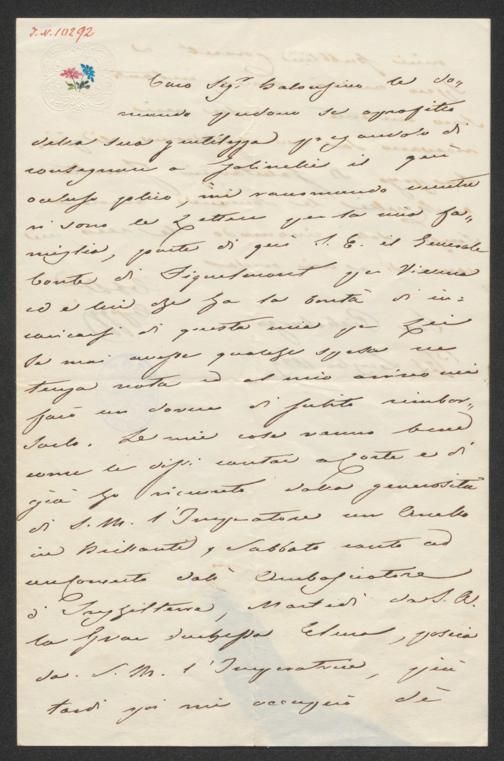 I.N. 10292
Caro Sigr. Balousino le do=
mando perdono se aprofitto
della sua gentilezza pregandolo di
consegnare a Galinelli il qui
acluso plico, mi racomando mentre
vi sono le Lettere per la mia fa=
miglia, parte di qui S. E. il Generale
Conte di Fiquelmont per Vienna
ed e lui che ha la bontà di in=
caricarsi di questa mia per Lei
Se mai avesse qualche spesa ne
tenga nota ed al mio arrivo mi
farò un dovere di subito rimbor=
sarlo. Le mie cose vanno bene
come le dissi cantai a Corte e di
già ho ricevuto dalla generosità
di S. M. l'Imperatore un Anello
in Brillanti, Sabbato canto ad
un Concerto dall' Ambasciatore
d'Inghilterra, Martedì da S. A.
la Gran Duchessa Elena, poscia
da S. M. l'Imperatrice, più
tardi poi mi occuperò di